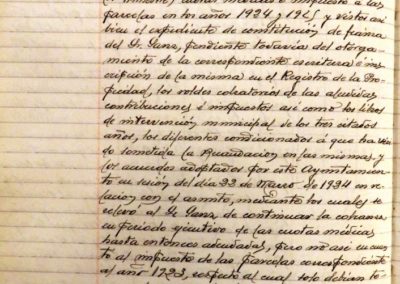 impuesto a las
parcelas en los años 1924 y 1925 y vistos así
bien el expediente de constitución de fianza
del Sr. Sanz, pendiente todavía del otorga-
miento de la correspondiente escritura e ins-
cripción de la misma en el Registro de la Pro-
piedad, los roldes cobratorios de las aludidas
contribuciones é impuestos así como los libros
de intervención municipal de los tres citados
años, los diferentes condicionados á que ha veni
do sometida la Recaudación en las mismas, y
los acuerdos adoptados por este Ayuntamien-
to en sesión del día 22 de Marzo de 1924 en re-
lación con el asunto, mediante los cuales se
relevó al Sr. Sanz, de continuar la cobranza
en periodo ejecutivo de las cuotas médicas
hasta entonces adeudadas, pero no así en cuan
to al impuesto de las parcelas correspondiente
al año 1923, respecto al cual solo debían to-